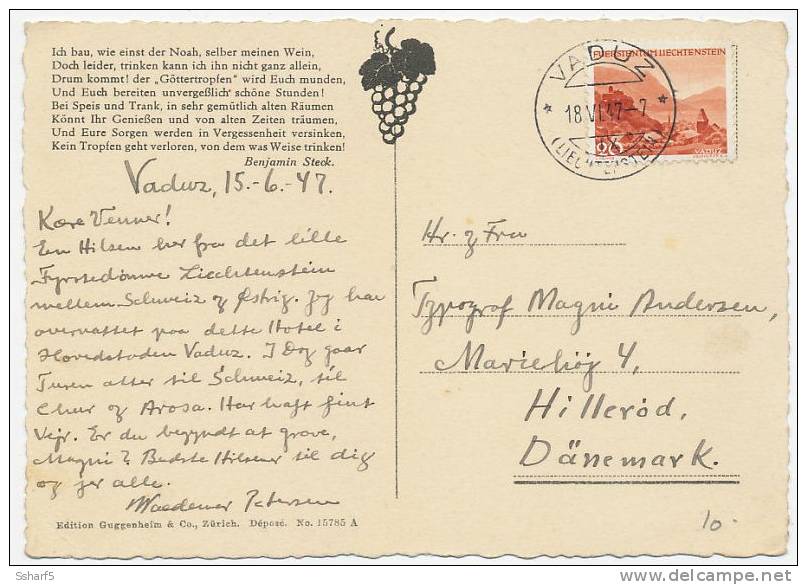 Ich bau, wie einst der Noah, selber meinen Wein,
Doch leider, trinken kann ich ihn nicht ganz allein,
Drum kommt! der „Göttertropfen" wird Euch munden,
Und Euch bereiten unvergeßlich' schöne Stunden!
Bei Speis und Trank, in sehr gemütlich alten Räumen
Könnt Ihr Genießen und von alten Zeiten träumen,
Und Eure Sorgen werden in Vergessenheit versinken,
Kein Tropfen geht verloren, von dem was Weise trinken!
Benjamin Steck.
Vaduz, 15.-6.-47.
Kære Venner!
En Hilsen her fra det lille
Fyrstedømme Liechtenstein
mellem Schweiz og Østrig. Jeg har
overnattet paa dette Hotel i
Hovedstaden Vaduz. I Dag gaar
Turen atter til Schweiz, til
Chur og Arosa. Har haft fint
Vejr. Er du begyndt at grave,
Magni? Bedste Hilsener til dig
og jer alle.
Petersen
Edition Guggenheim & Co., Zürich. Déposé. No. 15785 A
FUERSTENTUM LIECHTENSTEIN
VADUZ
18.VI.47-7
(LIECHTENSTEIN)
20
VADUZ
Hr. & Fru
Typograf Magni Andersen,
Mariehöj 4,
Hilleröd,
Dänemark.
10.-
Scharf5
©delcampe.net